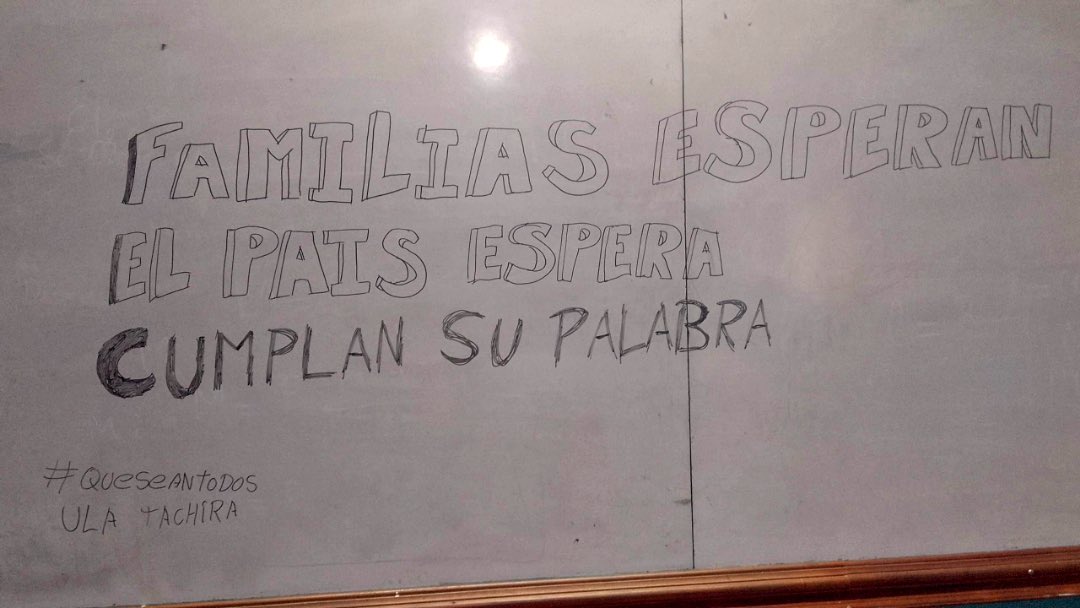 FAMILIAS ESPERAN
EL PAIS ESPERA
CUMPLAN SU PALABRA
#QUESEANTODOS
ULA TACHIRA